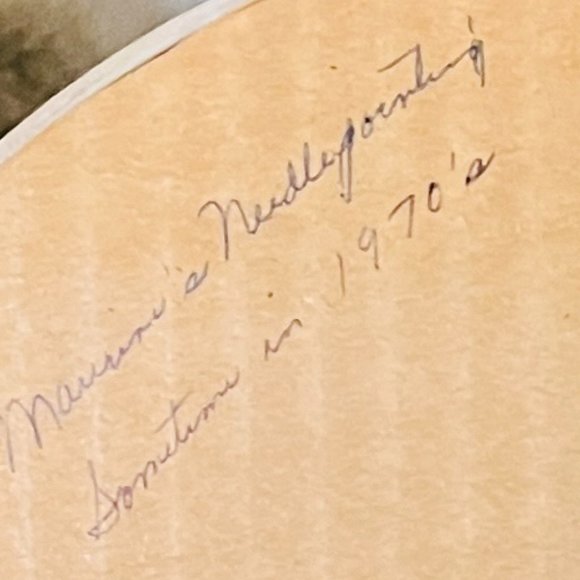 Maurine's Needlepointing
Sometime in 1970's